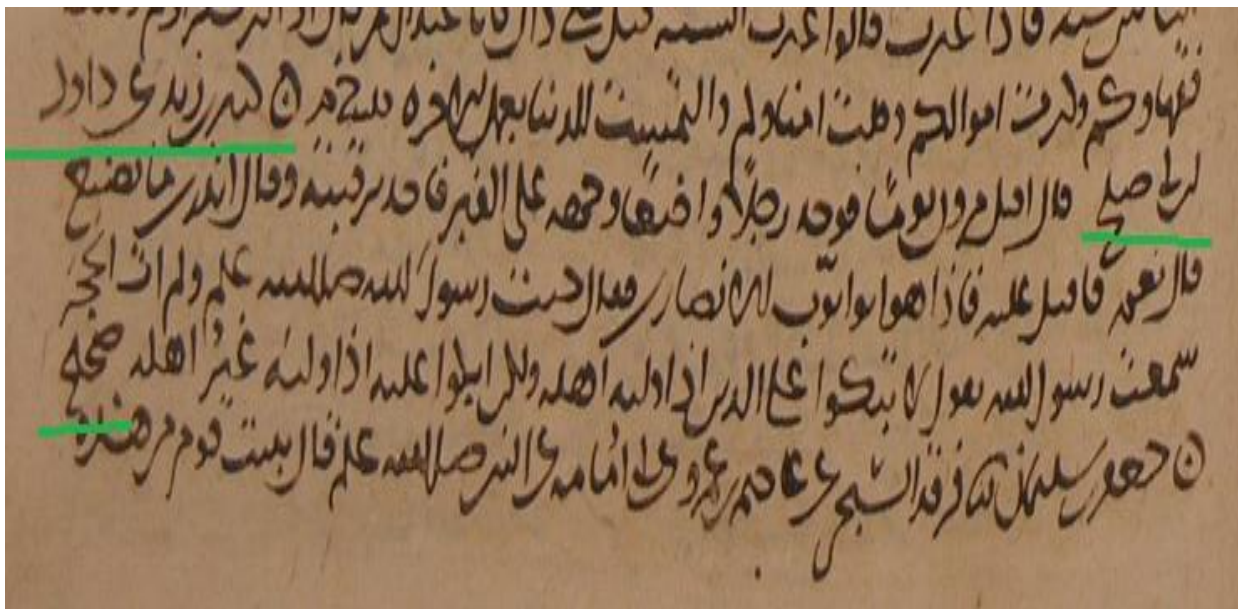 فاذا غيرت قالوا غيرت السنة قيل متى ذاك يا ابا عبد الرحمن قال اذا كثر
فقهاوكم وكثرت اموالكم وقلت امناوكم والتمست الدنيا بعمل الاخرة ن كثير بن زيد عن داود
بن ابي صالح قال اقبل مروان يوما فوجد رجلا واضعا وجهه على القبر فاخذ برقبته وقال اتدري ما تصنع
قال نعم فاقبل عليه فاذا هو ابو ايوب الانصاري فقال جئت رسول الله صلى الله عليه ولم ات الحجر
سمعت رسول الله يقول لا تبكوا على الدين اذا وليه اهله ولكن ابكوا عليه اذا وليه غير اهله صحيح
ن جعفر بن سليمان ثنا فرقد السبخي عن عاصم بن عمرو عن ابي امامة عن النبي صلى الله عليه قال يبيت قوم من هذه